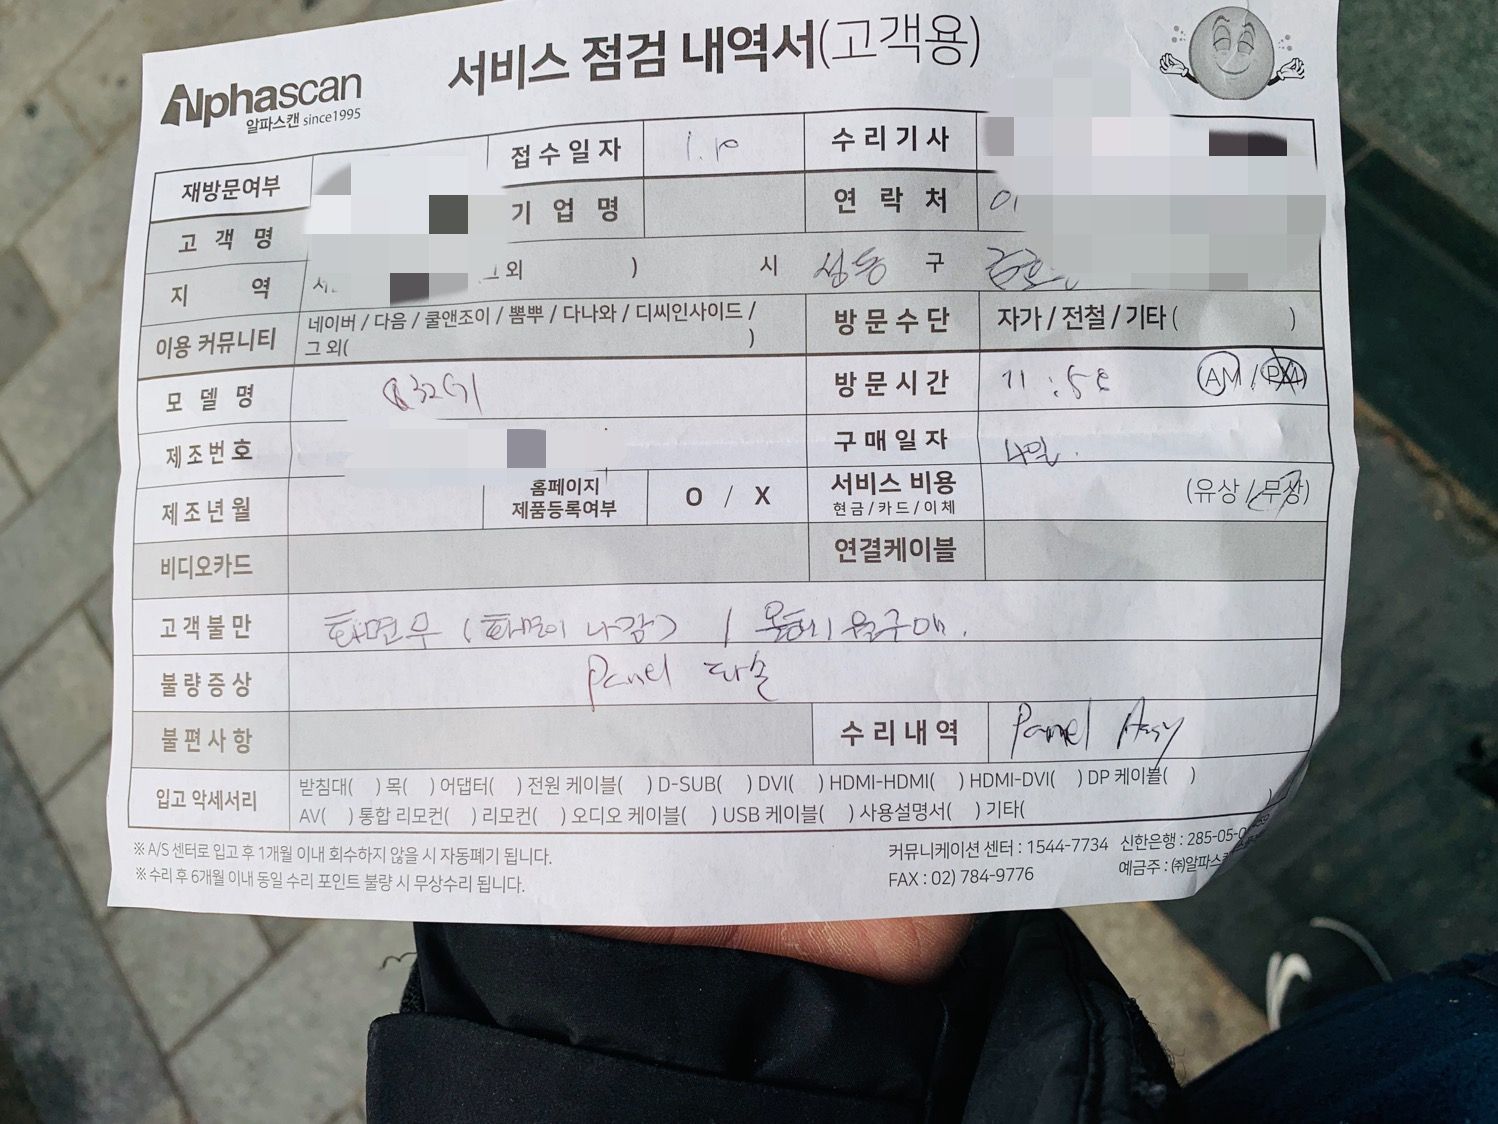 Alphascan
알파스캔 since1995
서비스 점검 내역서(고객용)
재방문여부 접수일자 수리기사
고객명 기업명 연락처 01
지역 그 외 ) 시 성동 구
이용 커뮤니티 네이버 / 다음 / 쿨앤조이 / 뽐뿌 / 다나와 / 디씨인사이드 /
그 외( )
방문수단 자가 / 전철 / 기타 ( )
모델명 Q32G1 방문시간 11:50 AM / PM
제조번호 구매일자 4일.
제조년월 홈페이지 제품등록여부 O / X 서비스 비용 (유상 / 무상)
현금 / 카드 / 이체
비디오카드 연결케이블
고객불만 화면무 (화면이 나감) /
불량증상 panel 파손
불편사항 수리내역 Panel Assy
입고 악세서리 받침대( ) 목( ) 어댑터( ) 전원 케이블( ) D-SUB( ) DVI( ) HDMI-HDMI( ) HDMI-DVI( ) DP 케이블( )
AV( ) 통합 리모컨( ) 리모컨( ) 오디오 케이블( ) USB 케이블( ) 사용설명서( ) 기타( )
※ A/S 센터로 입고 후 1개월 이내 회수하지 않을 시 자동폐기 됩니다.
※ 수리 후 6개월 이내 동일 수리 포인트 불량 시 무상수리 됩니다.
커뮤니케이션 센터 : 1544-7734 신한은행 : 285-05-0
FAX : 02) 784-9776 예금주 : ㈜알파스캔